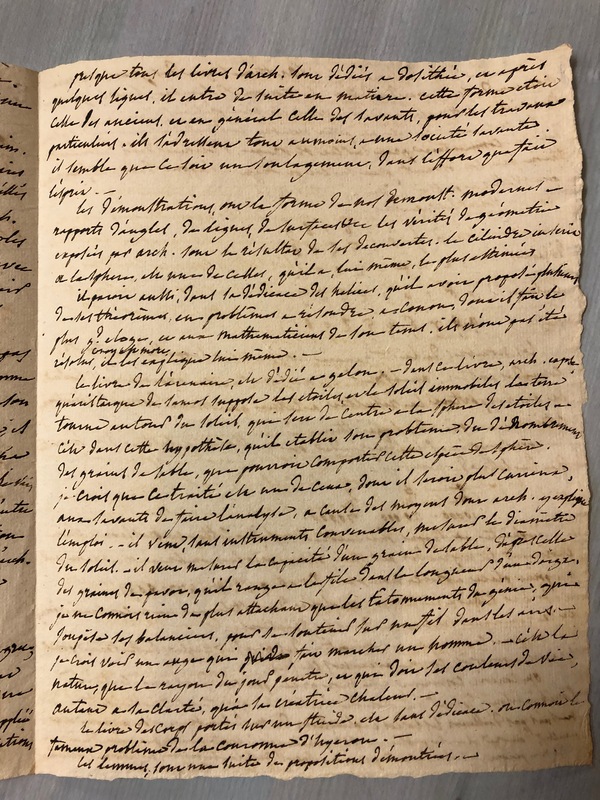 presque tous les livres d'arch. sont dédiés a dosithée, et après
quelques lignes, il entre de suite en matiere. cette forme etoit
celle des anciens, et en général celle des savants, pour les travaux
particuliers. ils s'adressent tous au moins, a une société savante.
il semble que ce soit un soulagement, dans l'effort que fait
l'esprit. —
les démonstrations, ont la forme de nos demonst. modernes —
rapports d'angles, de lignes, de surfaces &c les vérités de géometrie
exposées par arch. sont le résultat de ses decouvertes. le cilindre inscrit
a la sphere, est une de celles, qu'il a, lui même, le plus estimées
il paroit aussi, dans sa dédicace des helices, qu'il avoit proposé plusieurs
de ses théorêmes, en problêmes a résoudre, a conon, dont il fait le
plus gd eloge, et aux mathématiciens de son tems. ils n'ont pas été
résolus, et les explique lui même. —
le livre de l'arénaire, est dédié a gelon. — dans ce livre, arch.
qu'aristarque de samos suppose les etoiles, et le soleil immobiles. la terre
tourne autour du soleil, qui sert de centre a la sphere des etoiles —
c'est dans cette hypothèse, qu'il etablit son problême, du dénombrement
des grains de sable, que pourroit comporter cette espèce de sphère.
je crois que ce traité est un de ceux, dont il seroit plus curieux,
aux savants de faire l'analyse, a cause des moyens dont arch.
l'emploi — il veut, sans instruments convenables, mesurer le diamètre
du soleil. — il veut mesurer la capacité d'un grain de sable, par celle
des graines de pavot, qu'il range a la file dans la longueur d'un doigt.
je ne connois rien de plus attachant que les tatonnements du génie, qui a
jusqu'a ses balanciers, pour se soutenir sur un fil dans les airs. —
je crois voir un ange qui fait marcher un homme. — c'est la
nature, que le rayon du jour penètre, et qui doit ses couleurs de vie,
autant a sa clarté, qu'a sa créatrice chaleur. —
le livre des corps portés sur un fluide, est sans dédicace. on connoit le
fameux problême de la couronne d'hyeron. —
les lemmes, sont une suite de propositions démontrées. —